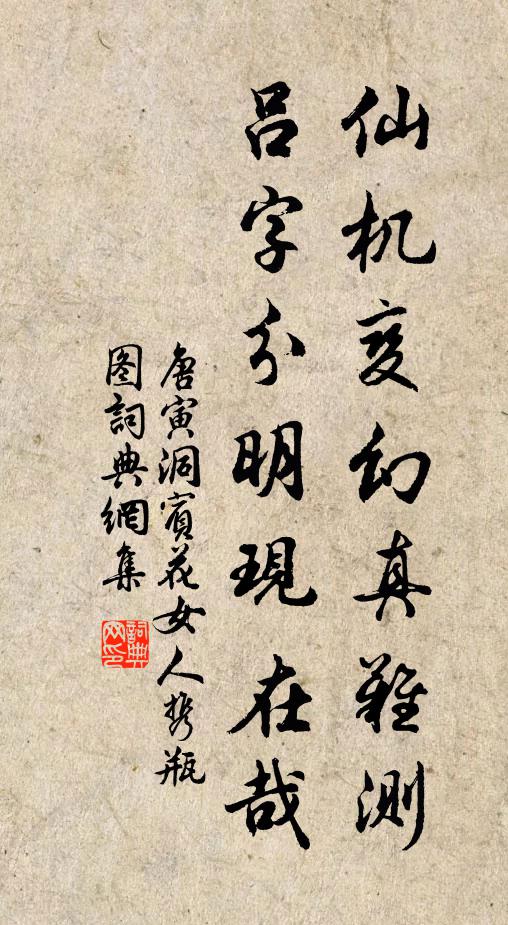 仙机变幻真难测
吕字分明现在哉
唐寅洞宾花女人携瓶
图词典網集
詞典
网印